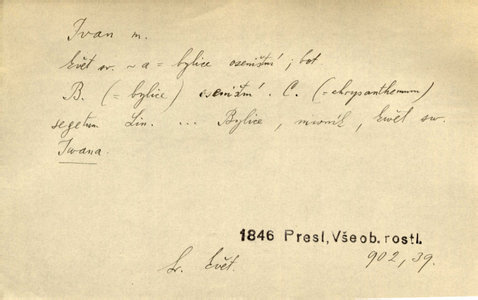 Ivan m.
Květ sv. ~a = bylice oseništní; bot
B. (= bylice) oseništní. C. (= chrysanthemum)
segetum Lin. ... Bylice, mrvník, květ sv.
Iwana.
1846 Presl, Všeob. rostl.
902, 39.
Květ.